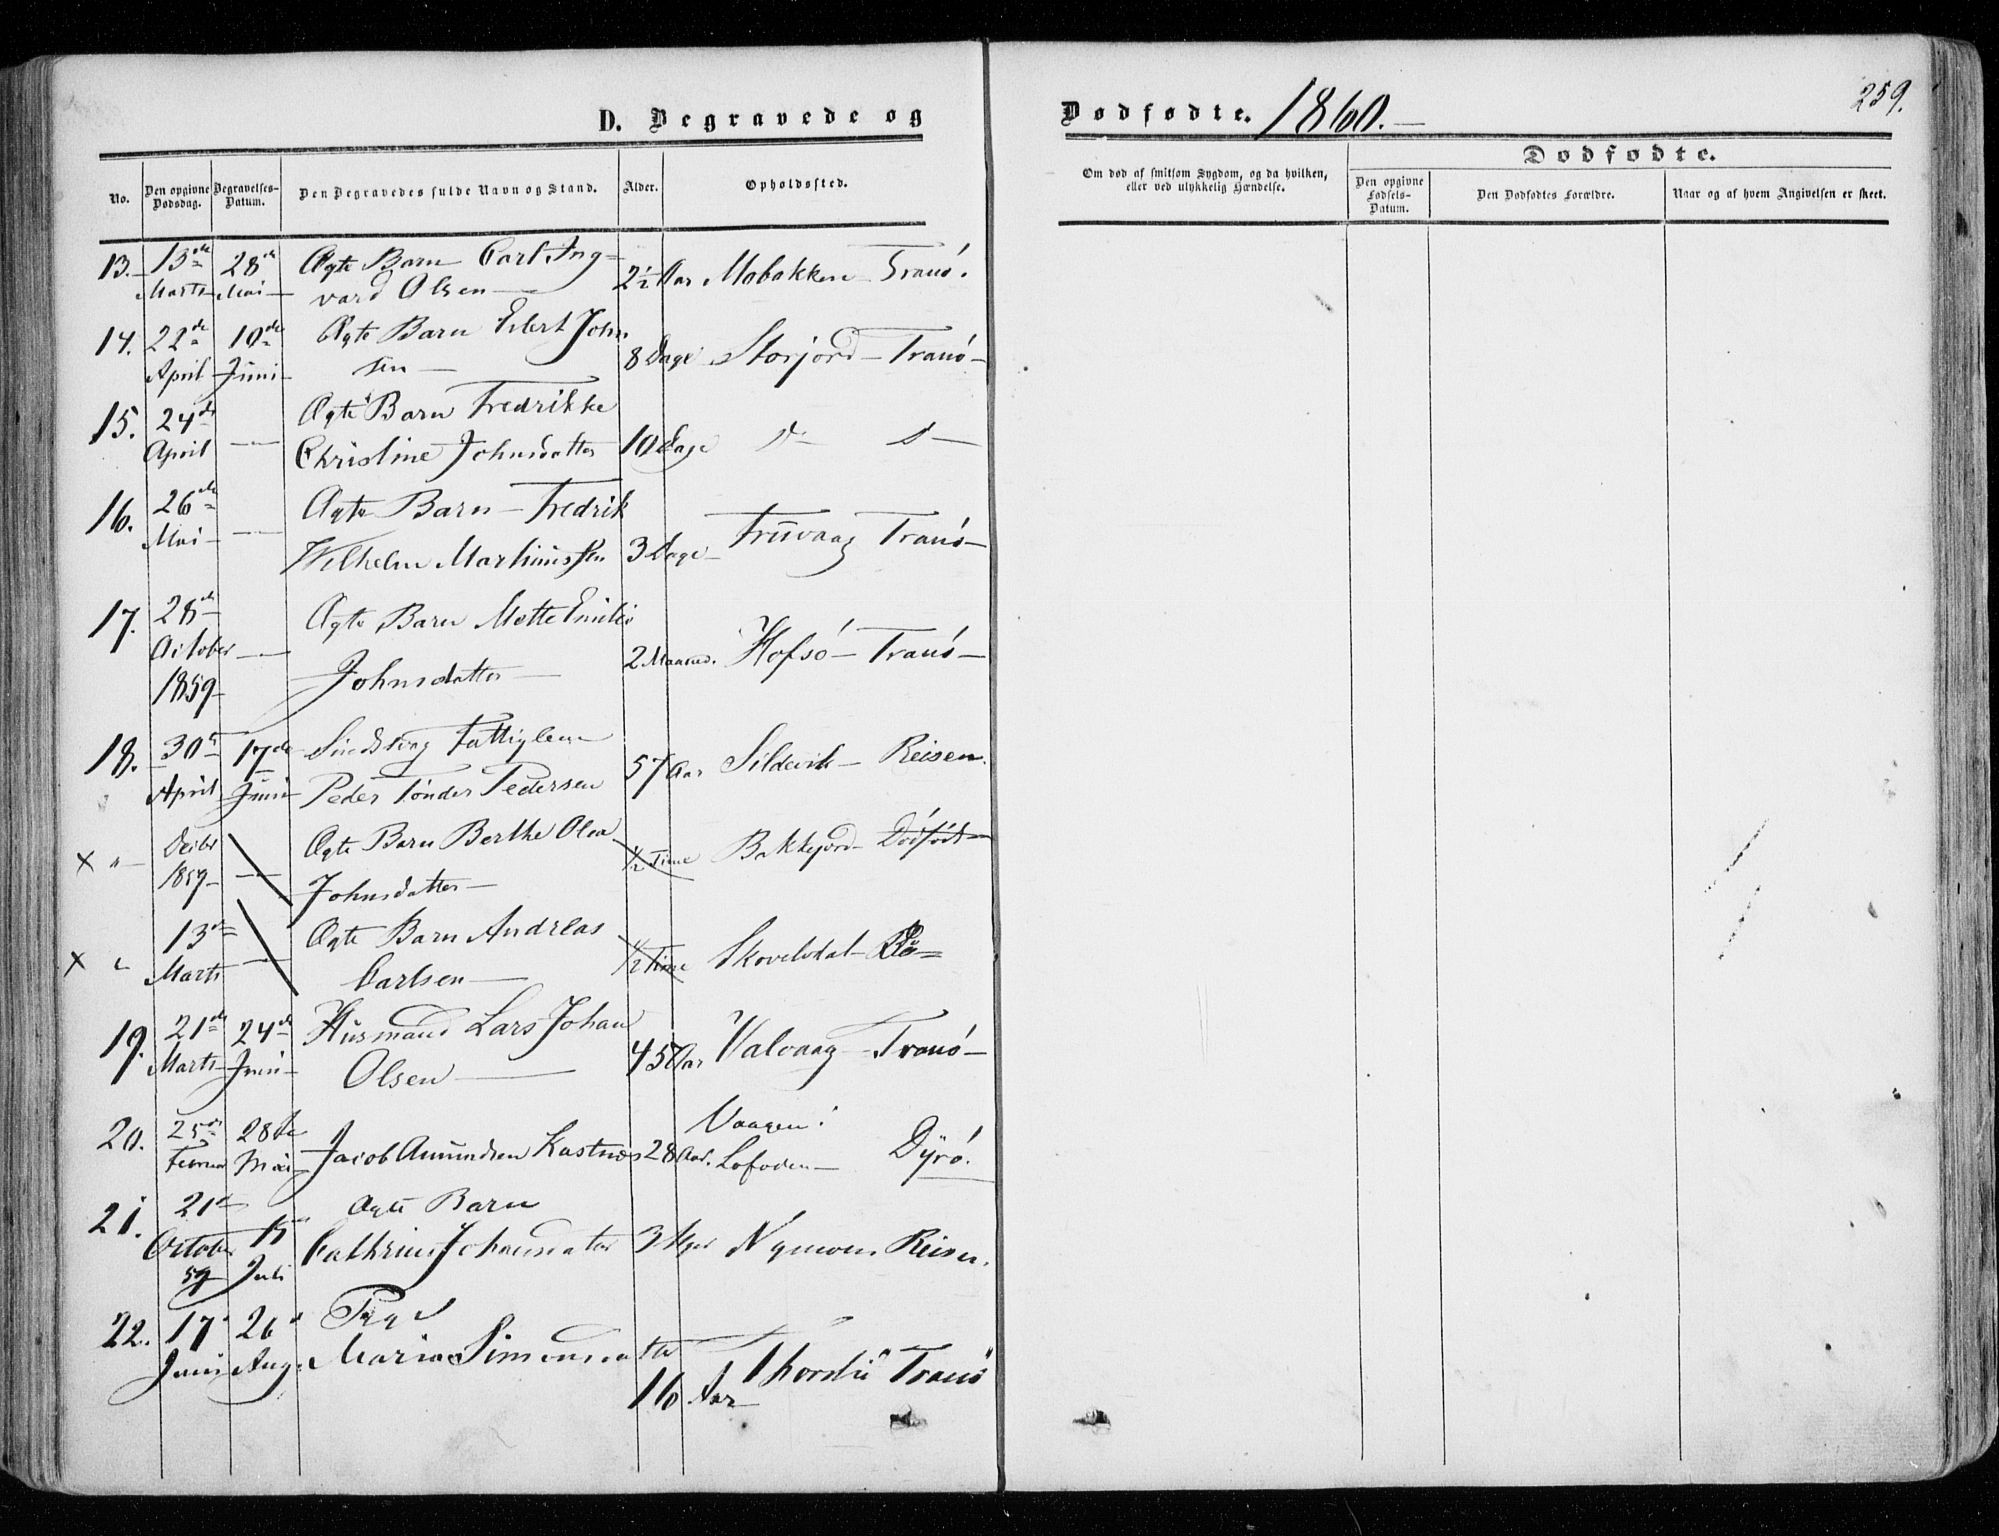 D. Begravede og
Dødfødte. 1860.
259.
No.
Den opgivne Dødsdag.
Begravelses-Datum.
Den Begravedes fulde Navn og Stand.
Alder.
Opholdssted.
Om død af smitsom Sygdom, og da hvilken, eller ved ulykkelig Hændelse.
Dødfødte.
Den opgivne Fødsels-Datum.
Den Dødfødtes Forældre.
Naar og af hvem Angivelsen er skeet.
13. 13de 28de Ægte Barn Carl Ing-
Marts Mai vard Olsen 2½ Aar Mobakken Tranö.
14. 22de 10de Ægte Barn Eilert John
April Juni sen 8 Dage Storjord Tranö
15. 24de Ægte Barn Fredrikke
April Christine Johnsdatter 10 Dage d d
16. 26de Ægte Barn Fredrik
Mai Wilhelm Martinussen 3 Dage Trüvaag Tranö
17. 28de Ægte Barn Mette Emilie
October Johnsdatter 2 Maaned. Hofsö Tranö
1859
18. 30te 17de Sindssvag Fattiglem
April Juni Peder Tönder Pedersen 57 Aar Sildevik Reisen.
X " Decbr Ægte Barn Berthe Olea
1859 Johnsdatter ½ Time Bakkejord Dödfödt
X " 13de Ægte Barn Andreas
Marts Carlsen ½ Time Skovelvdal Do
19. 21de 24de Husmand Lars Johan
Marts Juni Olsen 45 Aar Valvaag Tranö
20. 25de 28de Jacob Amundsen Kastnes 28 Aar. Vaagen i
Februar Mai Lofoden Dÿrö.
21. 21de 15 Ægte Barn
October Cathrine Johnsdatter 3 Uger Reisen.
59 Juli
22. 17 26 Pige
Juni Aug. Maria Simonsdatter
16 Aar Thorsli Tranö